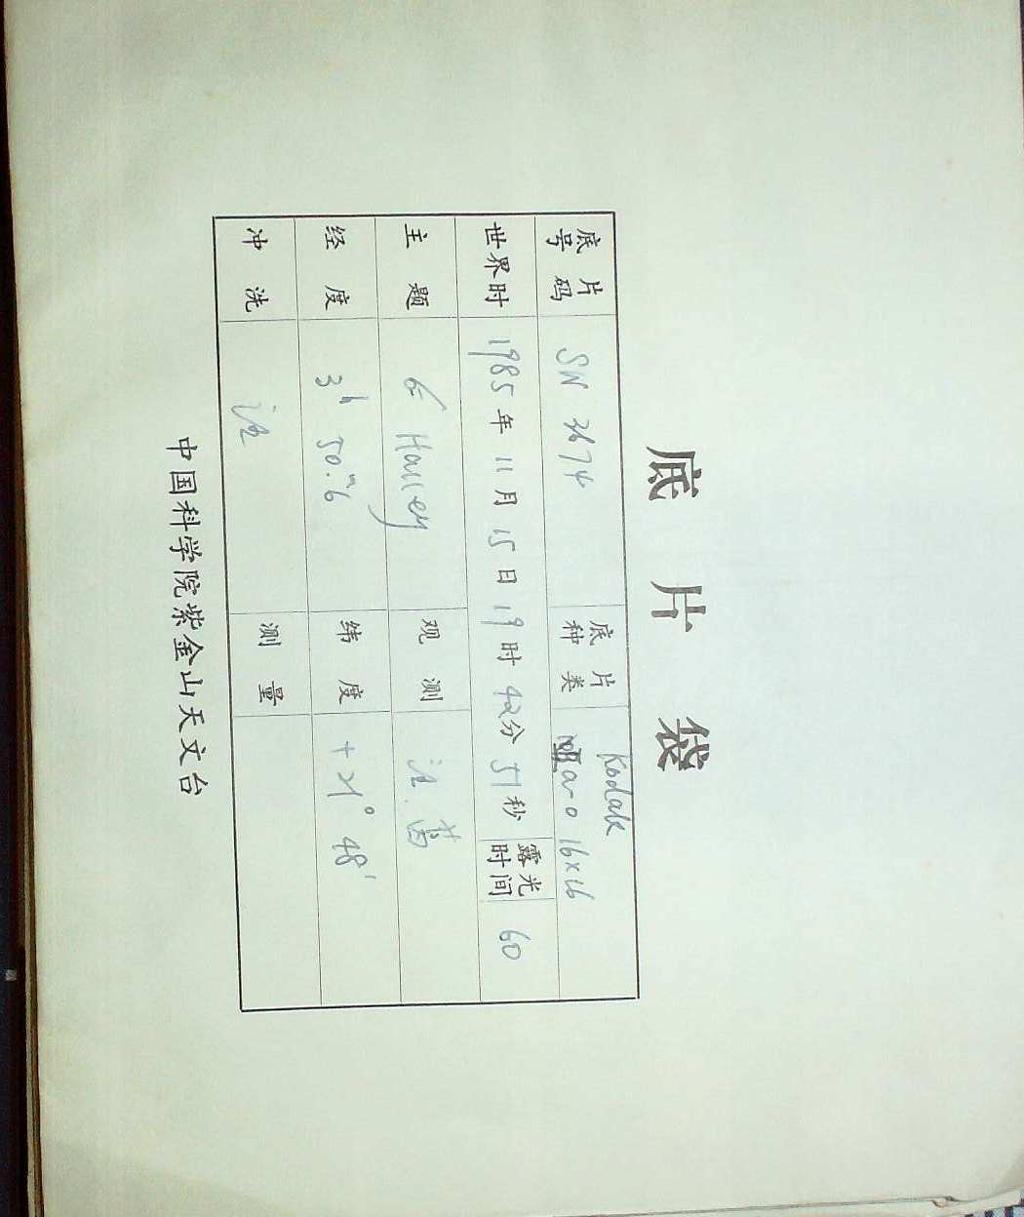 底片袋
底片号码 SN 3674 底片种类 Kodak a-0 16×16
世界时 1985年11月15日19时42分51秒 露光时间 60
主题 Halley 观测
经度 3h 50.m6 纬度 +21° 48′
冲洗 测量
中国科学院紫金山天文台